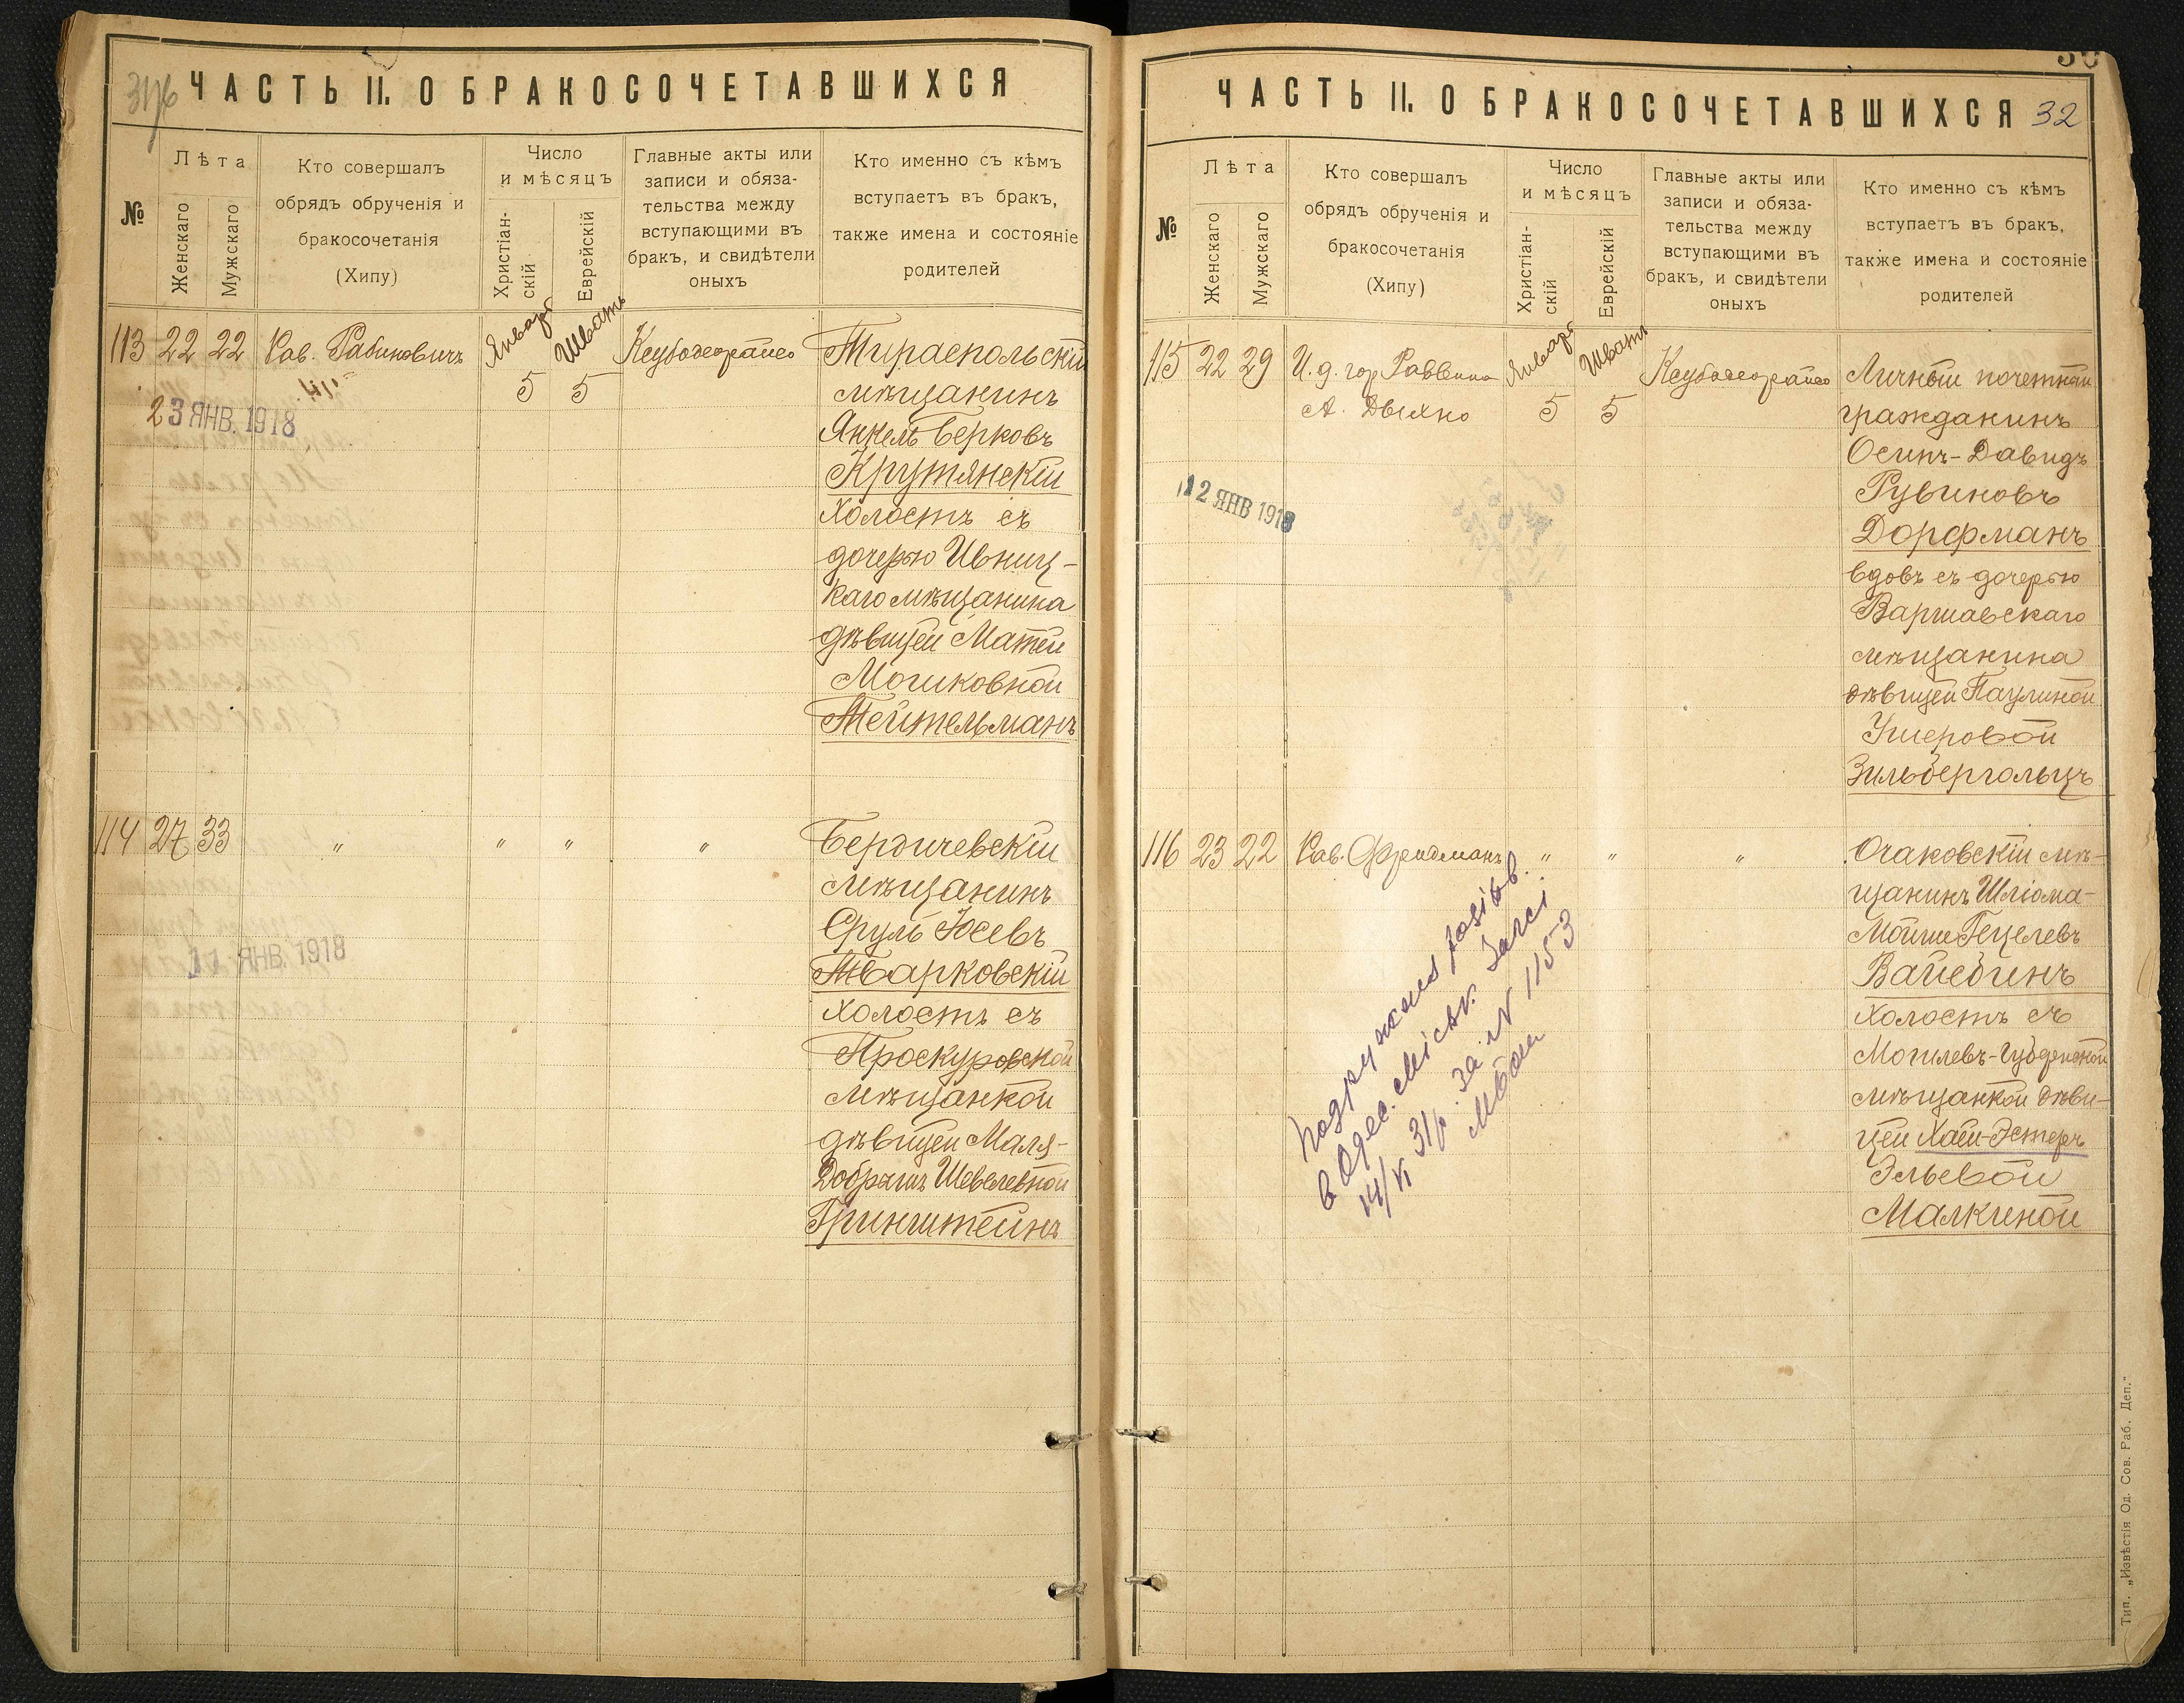 31/6
ЧАСТЬ II. О БРАКОСОЧЕТАВШИХСЯ
№
Лѣта
Женскаго
Мужскаго
Кто совершалъ
обрядъ обрученія и
бракосочетанія
(Хипу)
Число
и мѣсяцъ
Христіан-
скій
Еврейскій
Главные акты или
записи и обяза-
тельства между
вступающими въ
бракъ, и свидѣтели
оныхъ
Кто именно съ кѣмъ
вступаетъ въ бракъ,
также имена и состояніе
родителей
113 22 22 Рав. Рабиновичъ
Январ 5
Шватъ 5
23 ЯНВ. 1918
Тираспольскій
мѣщанинъ
Янкель Берковъ
Крутянскій
холостъ съ
дочерью Ивниц-
каго мѣщанина
дѣвицей Матей
Мошковной
Тейтельманъ
114 27 33 " " " "
11 ЯНВ. 1918
Бердичевскій
мѣщанинъ
Сруль Юсевъ
Тварковскій
холостъ съ
Проскуровской
мѣщанкой
дѣвицей Маля-
Добрышъ Шевелевной
Гринштейнъ
ЧАСТЬ II. О БРАКОСОЧЕТАВШИХСЯ
32
№
Лѣта
Женскаго
Мужскаго
Кто совершалъ
обрядъ обрученія и
бракосочетанія
(Хипу)
Число
и мѣсяцъ
Христіан-
скій
Еврейскій
Главные акты или
записи и обяза-
тельства между
вступающими въ
бракъ, и свидѣтели
оныхъ
Кто именно съ кѣмъ
вступаетъ въ бракъ,
также имена и состояніе
родителей
115 22 29 И. д. гор. Раввина
А. Дыхно
Январ 5
Шватъ 5
12 ЯНВ 1918
Личный почетный
гражданинъ
Осипъ-Давидъ
Рувиновъ
Дорфманъ
вдовъ съ дочерью
Варшавскаго
мѣщанина
дѣвицей Паулиной
Ушеровой
Зильбергольцъ
116 23 22 Рав. Фридманъ " " "
Очаковскій мѣ-
щанинъ Шліома-
Мойше Гецелевъ
Вайсбинъ
холостъ съ
Могилевъ-Губернской
мѣщанкой дѣви-
цей Хаей-Эстеръ
Эльевой
Малкиной
в Одес. Міськ. Загсі
31/р. за N 1153
Тип. „Извѣстія Од. Сов. Раб. Деп.“